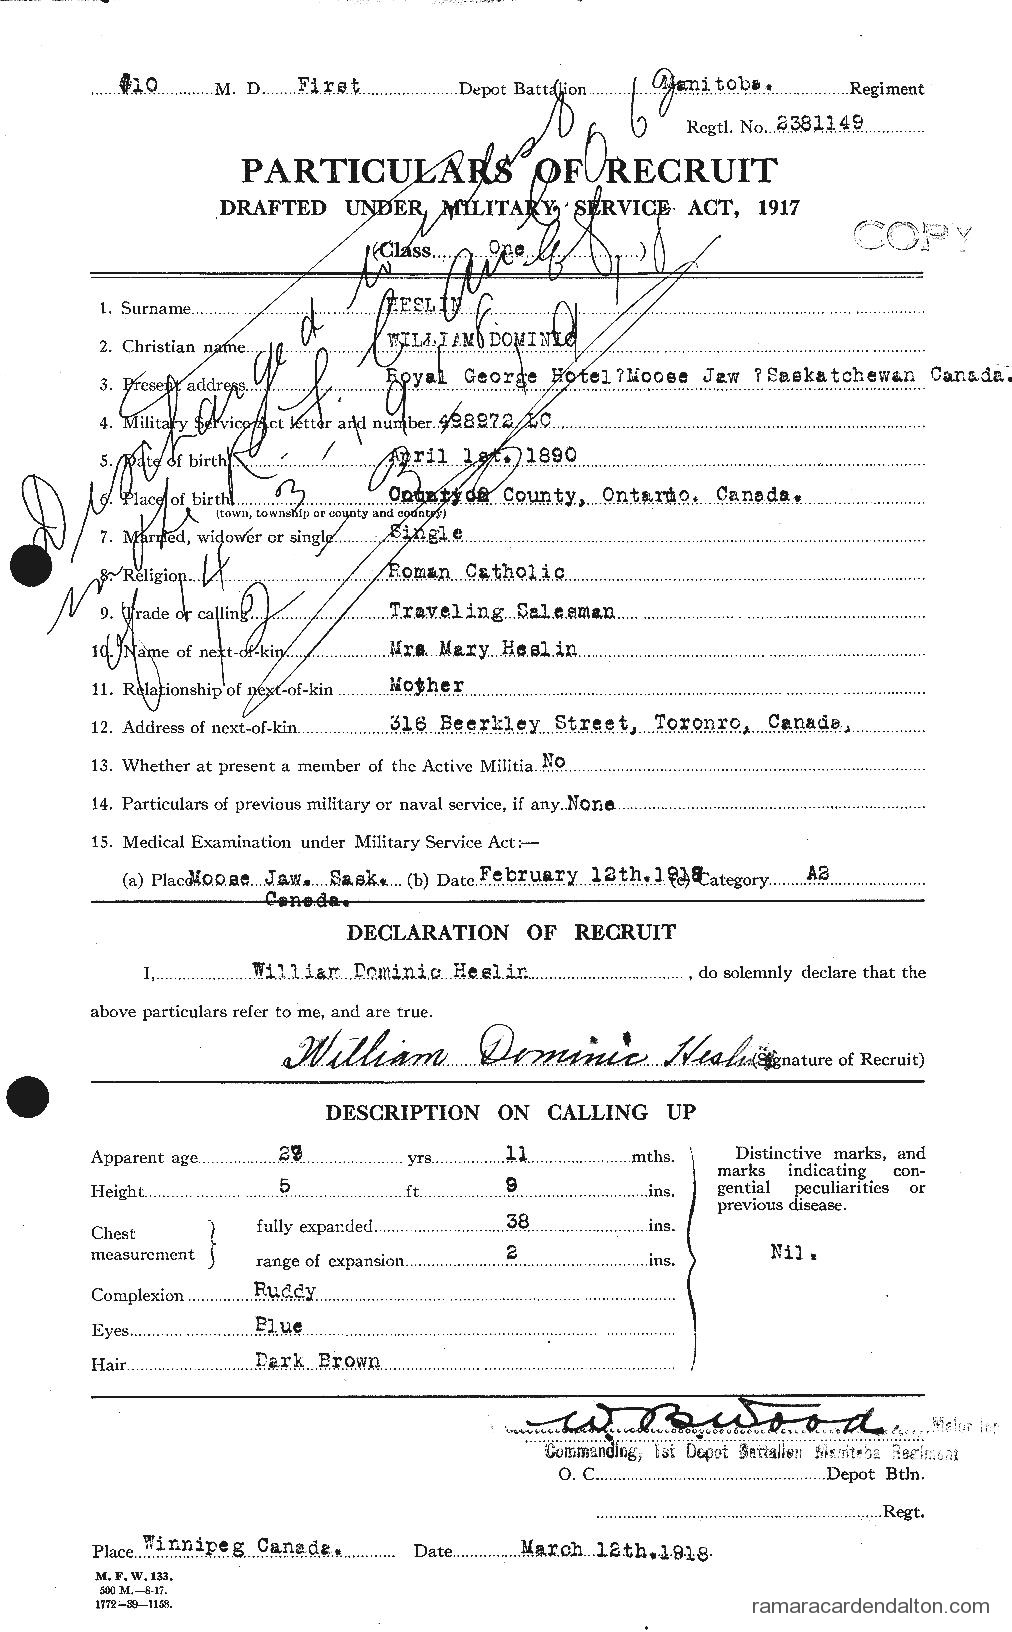 #10 M. D. First Depot Battalion Manitoba. Regiment
Regtl. No. 2381149
PARTICULARS OF RECRUIT
DRAFTED UNDER MILITARY SERVICE ACT, 1917
COPY
(Class One )
1. Surname HESLIN
2. Christian name WILLIAM DOMINIC
3. Present address Royal George Hotel?Moose Jaw ?Saskatchewan Canada.
4. Military Service Act letter and number 498972 LC
5. Date of birth April 1st. 1890
6. Place of birth County, Ontario. Canada.
(town, township or county and country)
7. Married, widower or single Single
8. Religion Roman Catholic
9. Trade or calling Traveling Salesman
10. Name of next-of-kin Mrs Mary Heslin
11. Relationship of next-of-kin Mother
12. Address of next-of-kin 316 Beerkley Street, Toronro, Canada,
13. Whether at present a member of the Active Militia No
14. Particulars of previous military or naval service, if any. None
15. Medical Examination under Military Service Act:—
(a) Place Moose Jaw. Sask. (b) Date February 12th. 1918 (c) Category A2
Canada.
DECLARATION OF RECRUIT
I, William Dominic Heslin, do solemnly declare that the
above particulars refer to me, and are true.
William Dominic Heslin (Signature of Recruit)
DESCRIPTION ON CALLING UP
Apparent age 27 yrs 11 mths.
Height 5 ft 9 ins.
Chest measurement
fully expanded 38 ins.
range of expansion 2 ins.
Complexion Ruddy
Eyes Blue
Hair Dark Brown
Distinctive marks, and
marks indicating con-
genital peculiarities or
previous disease.
Nil.
W B Wood Major for
Commanding, 1st Depot Battalion Manitoba Regiment
O. C. Depot Btln.
Regt.
Place Winnipeg Canada. Date March 12th. 1918.
M. F. W. 133.
500 M.—8-17.
1772—39—1158.
ramaracardendalton.com